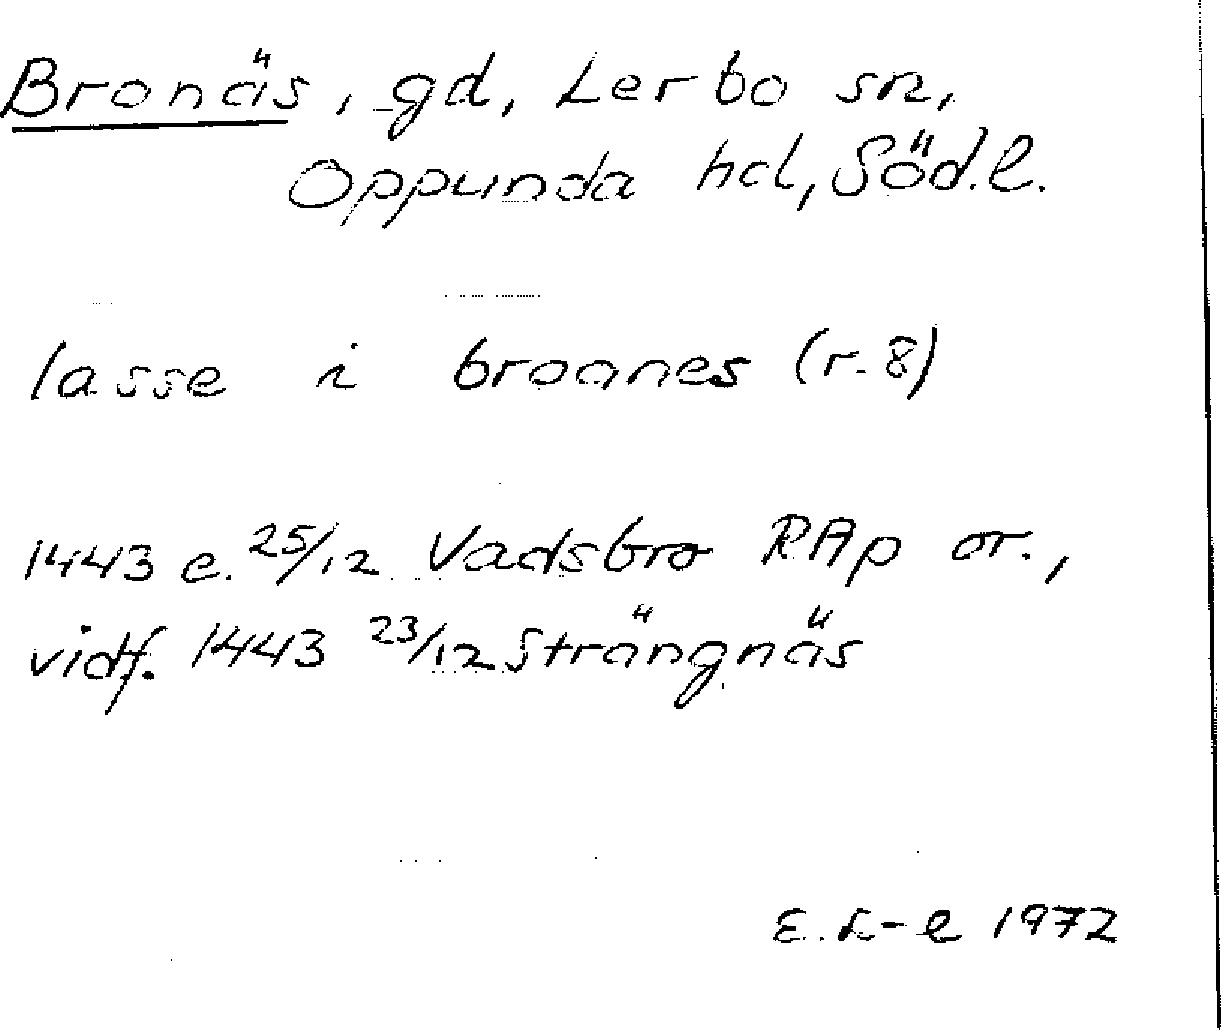 Bronäs, gd, Lerbo sn,
Oppunda hd, Söd.l.
lasse i broanes (r. 8)
1443 e. 25/12 Vadsbro RAp or.,
vidf. 1443 23/12 Strängnäs
E. L-e 1972